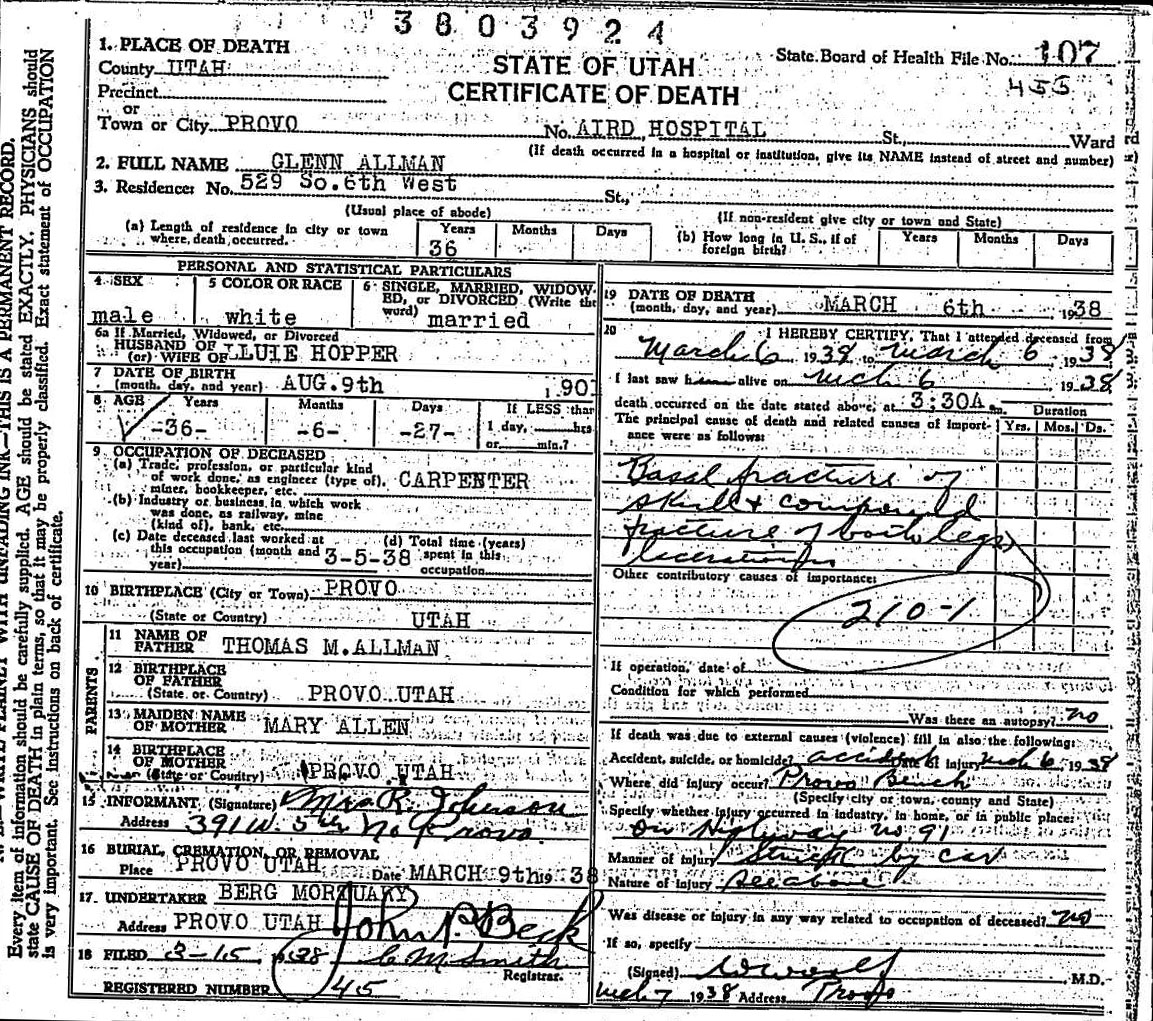 3803924
1. PLACE OF DEATH
County UTAH
Precinct
or
Town or City PROVO
STATE OF UTAH
CERTIFICATE OF DEATH
State Board of Health File No. 107
455
No. AIRD HOSPITAL St., Ward
(If death occurred in a hospital or institution, give its NAME instead of street and number)
2. FULL NAME GLENN ALLMAN
3. Residence: No. 529 So.6th West St.,
(Usual place of abode)
(If non-resident give city or town and State)
(a) Length of residence in city or town where death occurred.
Years Months Days
36
(b) How long in U. S., if of foreign birth?
Years Months Days
PERSONAL AND STATISTICAL PARTICULARS
4 SEX
male
5 COLOR OR RACE
white
6 SINGLE, MARRIED, WIDOWED, or DIVORCED (Write the word)
married
6a If Married, Widowed, or Divorced
HUSBAND OF
(or) WIFE OF LLUIE HOPPER
7 DATE OF BIRTH
(month, day, and year) AUG.9th 1901
8 AGE Years Months Days If LESS than
-36- -6- -27- 1 day, hrs
or min.?
9 OCCUPATION OF DECEASED
(a) Trade, profession, or particular kind
of work done, as engineer (type of), CARPENTER
miner, bookkeeper, etc.
(b) Industry or business in which work
was done, as railway, mine
(kind of), bank, etc.
(c) Date deceased last worked at
this occupation (month and
year) 3-5-38
(d) Total time (years)
spent in this
occupation
10 BIRTHPLACE (City or Town) PROVO
(State or Country) UTAH
PARENTS
11 NAME OF
FATHER THOMAS M.ALLMAN
12 BIRTHPLACE
OF FATHER
(State or Country) PROVO UTAH
13 MAIDEN NAME
OF MOTHER MARY ALLEN
14 BIRTHPLACE
OF MOTHER
(State or Country) PROVO UTAH
15 INFORMANT (Signature) Mrs R. Johnson
Address 391 W. 5th No Provo
16 BURIAL, CREMATION, OR REMOVAL
Place PROVO UTAH Date MARCH 9th 19 38
17 UNDERTAKER BERG MORTUARY
Address PROVO UTAH John P. Beck
18 FILED 3-15 1938 C M Smith
Registrar.
REGISTERED NUMBER 45
19 DATE OF DEATH
(month, day, and year) MARCH 6th 1938
20 I HEREBY CERTIFY, That I attended deceased from
March 6 1938 to March 6, 1938
I last saw him alive on Mch 6, 1938
death occurred on the date stated above, at 3:30A m.
The principal cause of death and related causes of importance were as follows:
Duration
Yrs. Mos. Ds.
Basal fracture of
skull & compound
fracture of both legs
lacerations
Other contributory causes of importance:
210-1
If operation, date of
Condition for which performed
Was there an autopsy? no
If death was due to external causes (violence) fill in also the following:
Accident, suicide, or homicide? accident Date of injury Mch 6, 1938
Where did injury occur? Provo Bench
(Specify city or town, county and State)
Specify whether injury occurred in industry, in home, or in public place:
on Highway no. 91
Manner of injury Struck by car
Nature of injury See above
Was disease or injury in any way related to occupation of deceased? no
If so, specify
(Signed) M.D.
Mch 7 1938 Address Provo
N. B.—WRITE PLAINLY WITH UNFADING INK—THIS IS A PERMANENT RECORD.
Every item of information should be carefully supplied. AGE should be stated EXACTLY. PHYSICIANS should
state CAUSE OF DEATH in plain terms, so that it may be properly classified. Exact statement of OCCUPATION
is very important. See instructions on back of certificate.